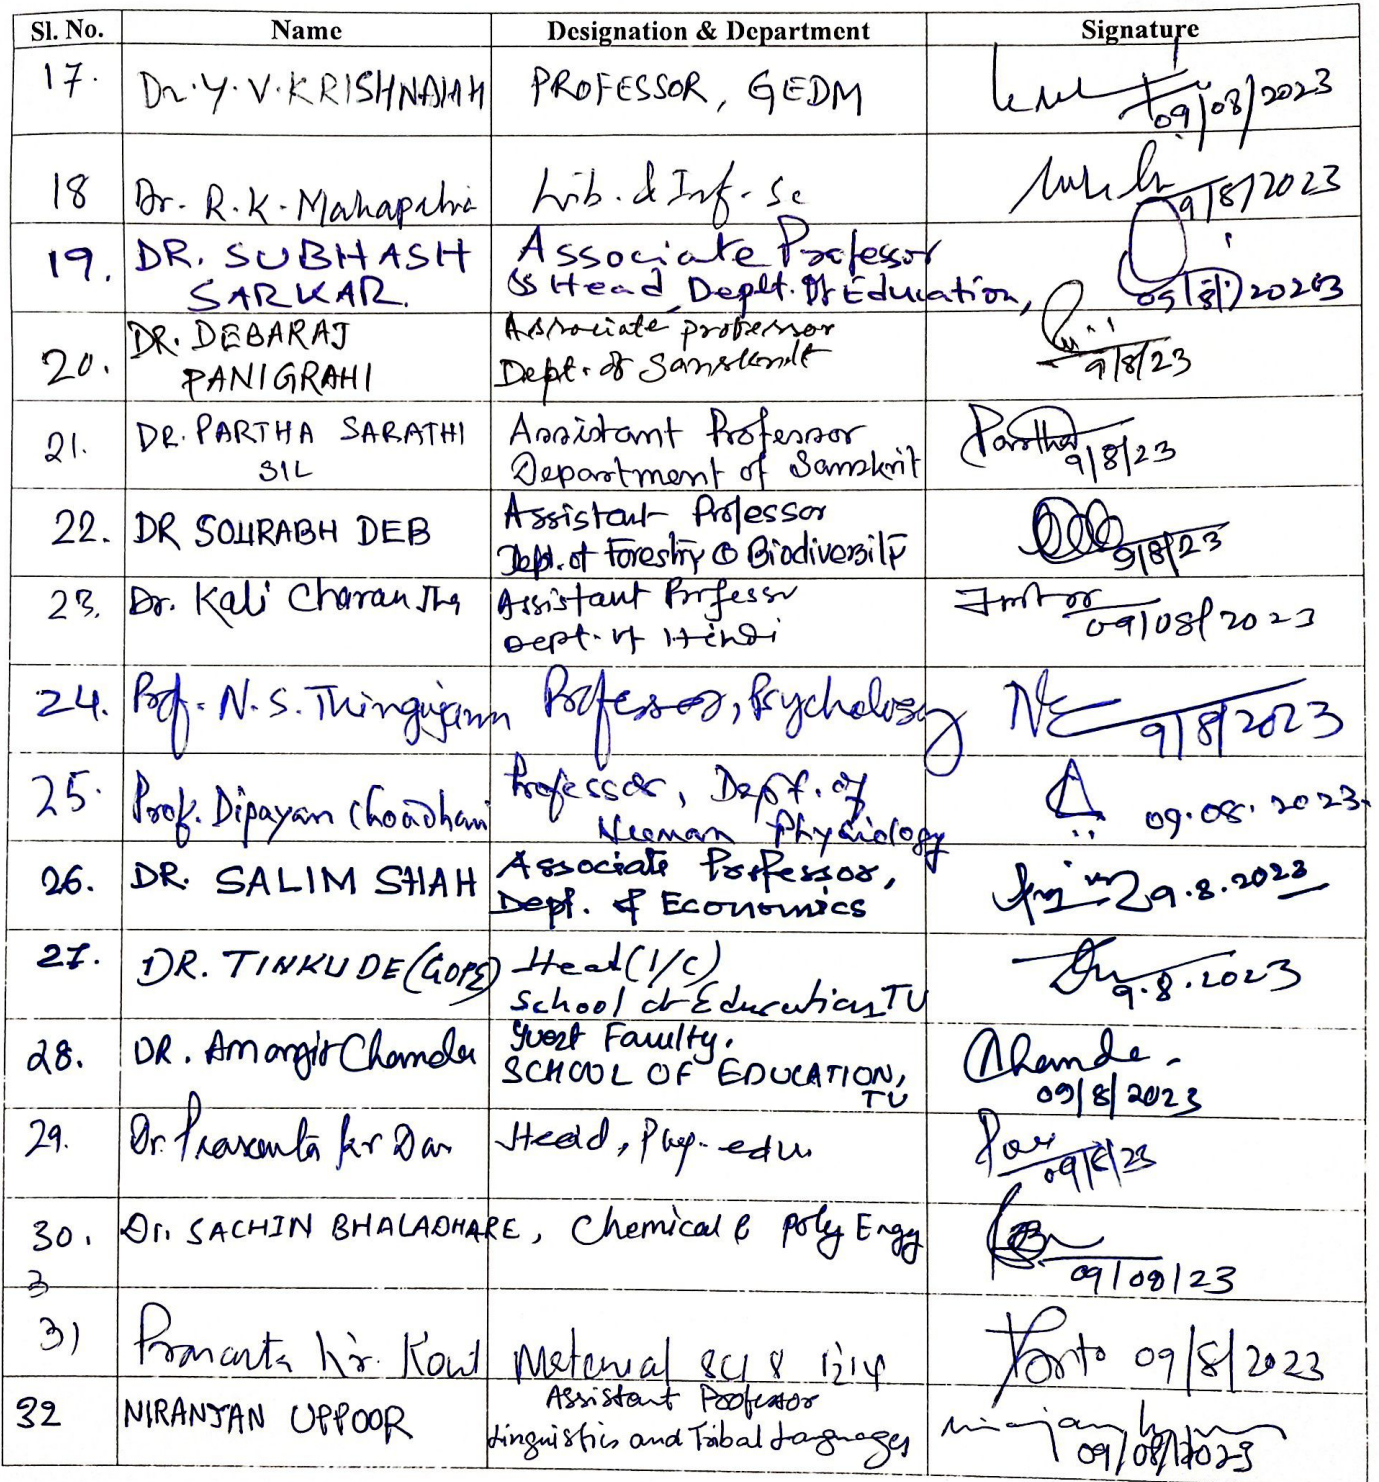 Sl. No. Name Designation & Department Signature
17. Dr. Y. V. KRISHNAIAH PROFESSOR, GEDM 09/08/2023
18 Dr. R. K. Mahapatra Lib. & Inf. Sc 9/8/2023
19. DR. SUBHASH Associate Professor
SARKAR. & Head, Deptt. Of Education, 2023
20. DR. DEBARAJ Associate professor
PANIGRAHI Dept. of Sanskrit 9/8/23
21. DR. PARTHA SARATHI Assistant Professor Partha
SIL Department of Sanskrit 9/8/23
22. DR SOURABH DEB Assistant Professor
Dept. of Forestry & Biodiversity 9/8/23
23. Dr. Kali Charan Jha Assistant Professor
Dept. of Hindi 09/08/2023
24. Prof. N. S. Thingujam Professor, Psychology 9/8/2023
25. Prof. Dipayan Choudhuri Professor, Dept. of 09.08.2023
Human Physiology
26. DR. SALIM SHAH Associate Professor, 9.8.2023
Dept. of Economics
27. DR. TINKU DE (GOPE) Head (I/C) 9.8.2023
School of Education, TU
28. DR. Amarjit Chanda Guest Faculty, Chanda
SCHOOL OF EDUCATION, 09/8/2023
TU
29. Dr. Prasanta kr Das Head, Phy. edu. 09/8/23
30. Dr. SACHIN BHALADHARE, Chemical & Poly Engg 09/08/23
3
31 Material Sci & 09/8/2023
32 NIRANJAN UPPOOR Assistant Professor
Linguistics and Tribal Languages 09/08/2023